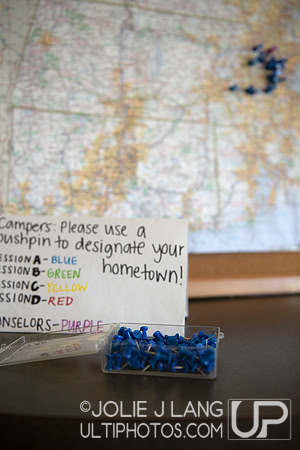 Campers: Please use a
pushpin to designate your
hometown!
ESSION A - BLUE
ESSION B - GREEN
ESSION C - YELLOW
ESSION D - RED
NSELORS - PURPLE
©JOLIE J LANG
ULTIPHOTOS.COM
UP